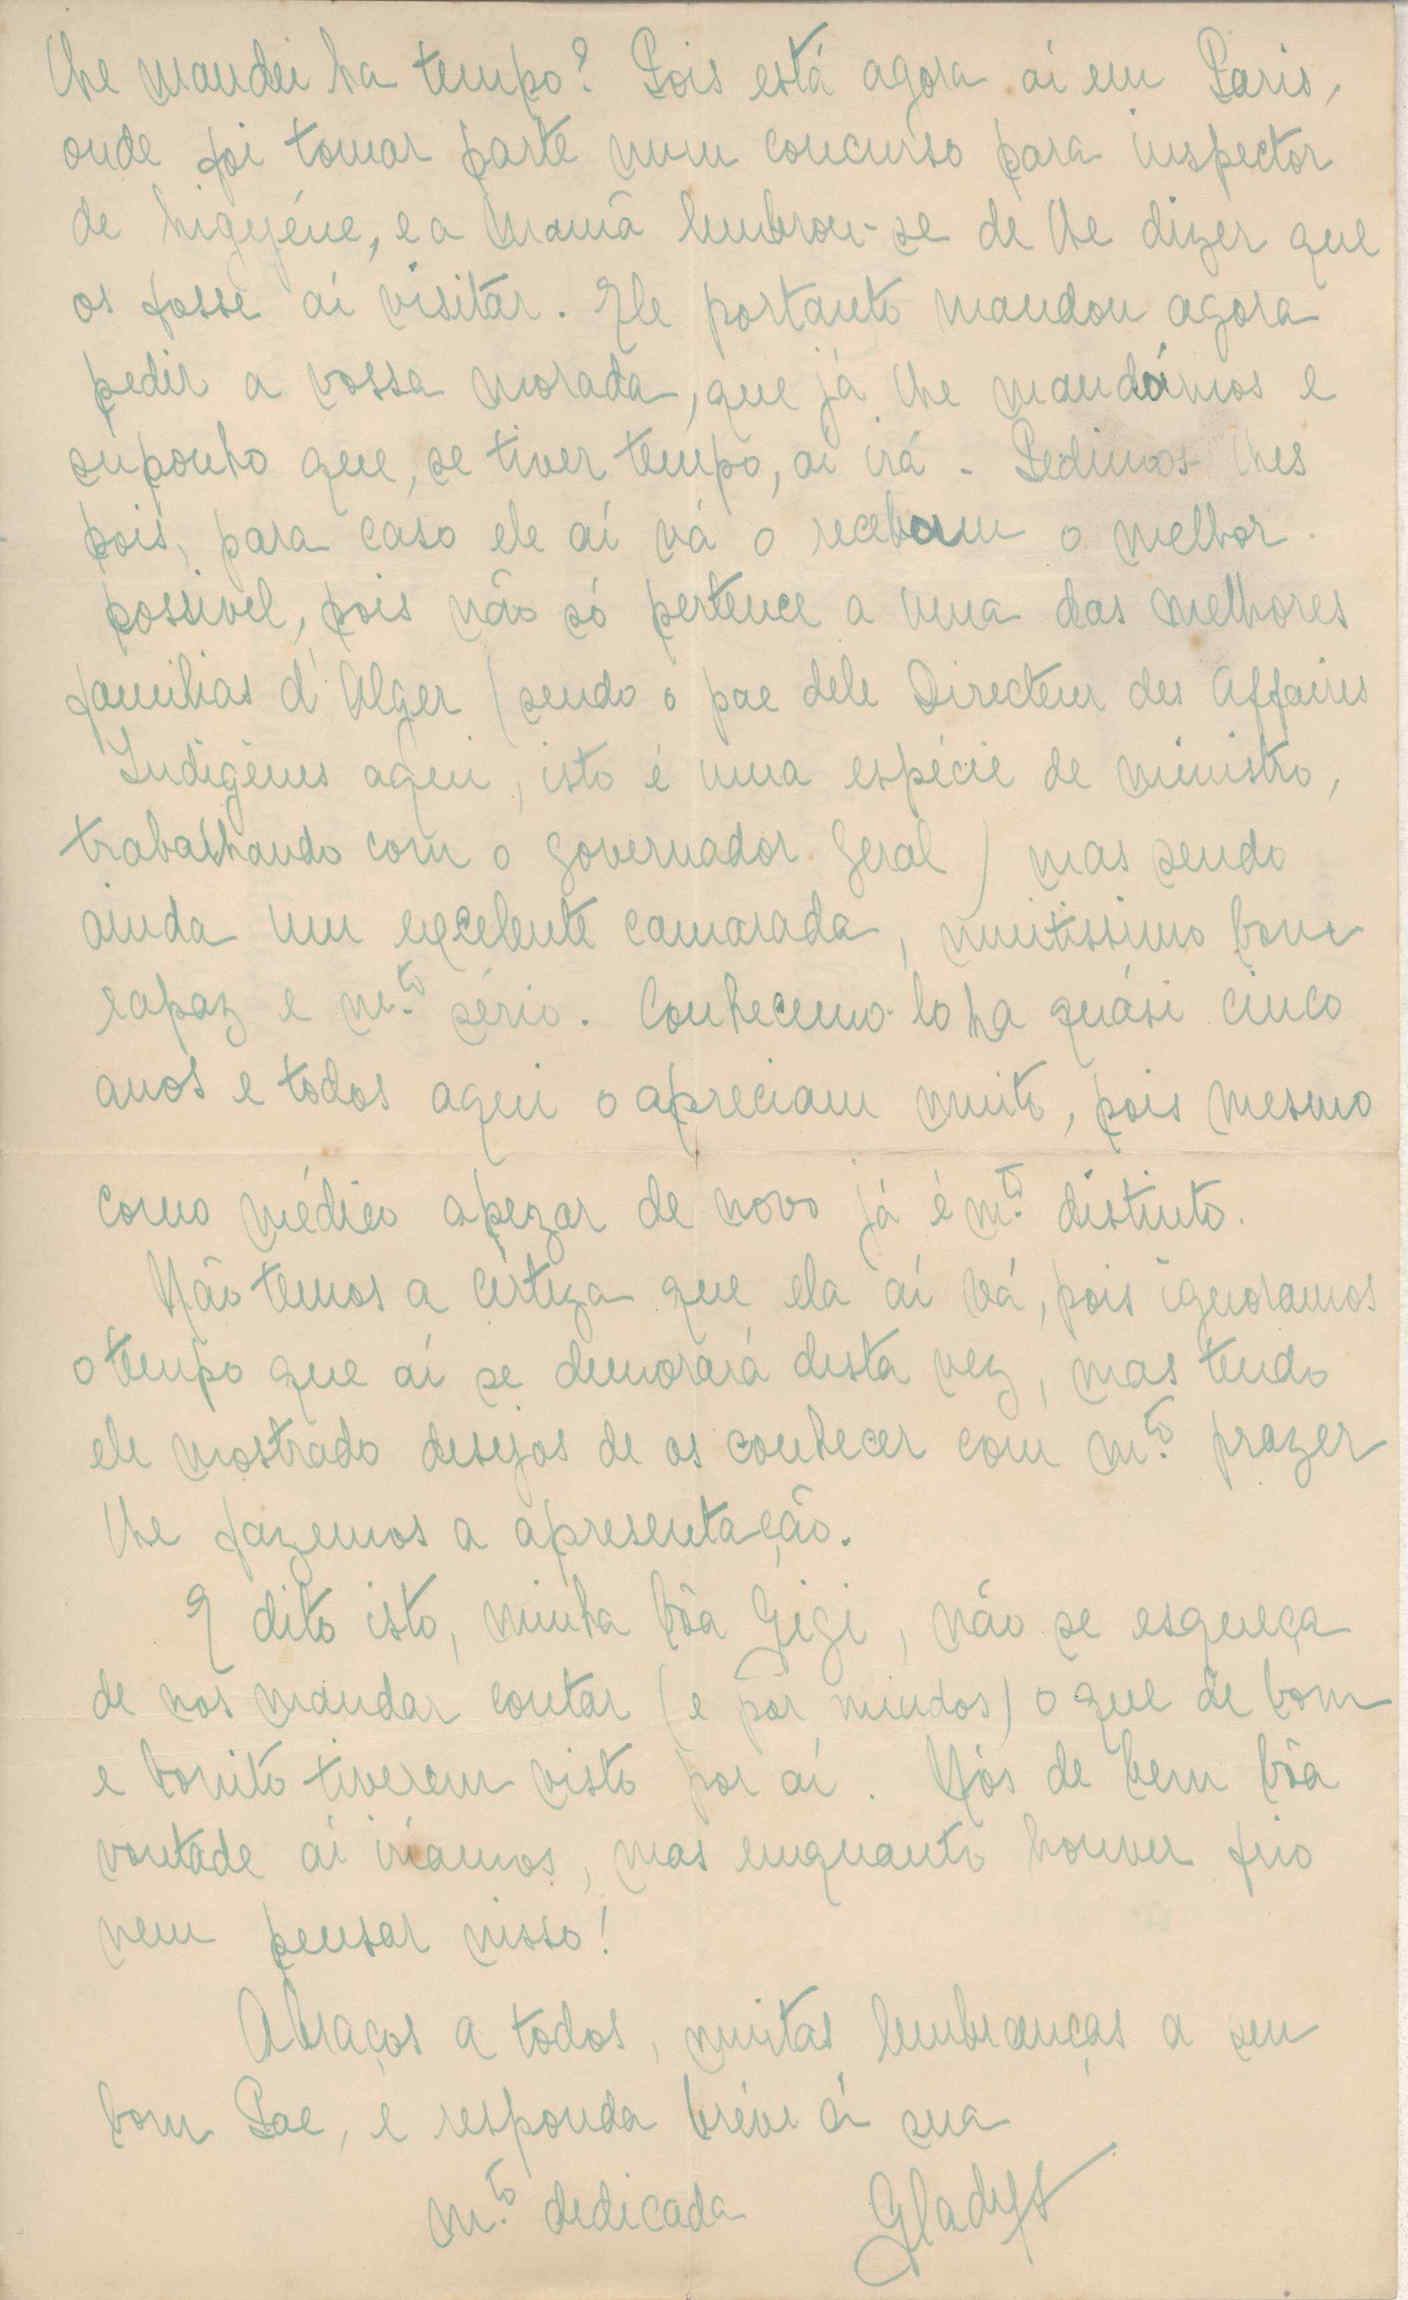 lhe mandei ha tempo? Pois está agora aí em Paris,
onde foi tomar parte num concurso para inspector
de higyéne, e a Mamã lembrou-se de lhe dizer que
os fosse aí visitar. Ele portanto mandou agora
pedir a vossa morada, que já lhe mandámos e
suponho que, se tiver tempo, aí irá - Pedimos-lhes
pois, para caso ele aí vá o recebam o melhor
possivel, pois não só pertence a uma das melhores
familias d'Alger (sendo o pae dele Directeur des Affaires
Indigènes aqui, isto é uma espécie de ministro,
trabalhando com o governador Geral) mas sendo
ainda um excelente camarada, muitissimo bom
rapaz e m.to sério. Conhecemo-lo ha quási cinco
anos e todos aqui o apreciam muito, pois mesmo
como médico apezar de novo já é m.to distinto.
Não temos a certeza que ela aí vá, pois ignoramos
o tempo que aí se demorará desta vez, mas tendo
ele mostrado desejos de os conhecer com m.to prazer
lhe fazemos a apresentação.
E dito isto, minha bôa Gigi, não se esqueça
de nos mandar contar (e por miudos) o que de bom
e bonito tiverem visto por aí. Nós de bem bôa
vontade aí iriamos, mas emquanto houver frio
nem pensar nisso!
Abraços a todos, muitas lembranças a seu
bom Pae, e responda bréve á sua
m.to dedicada Gladys